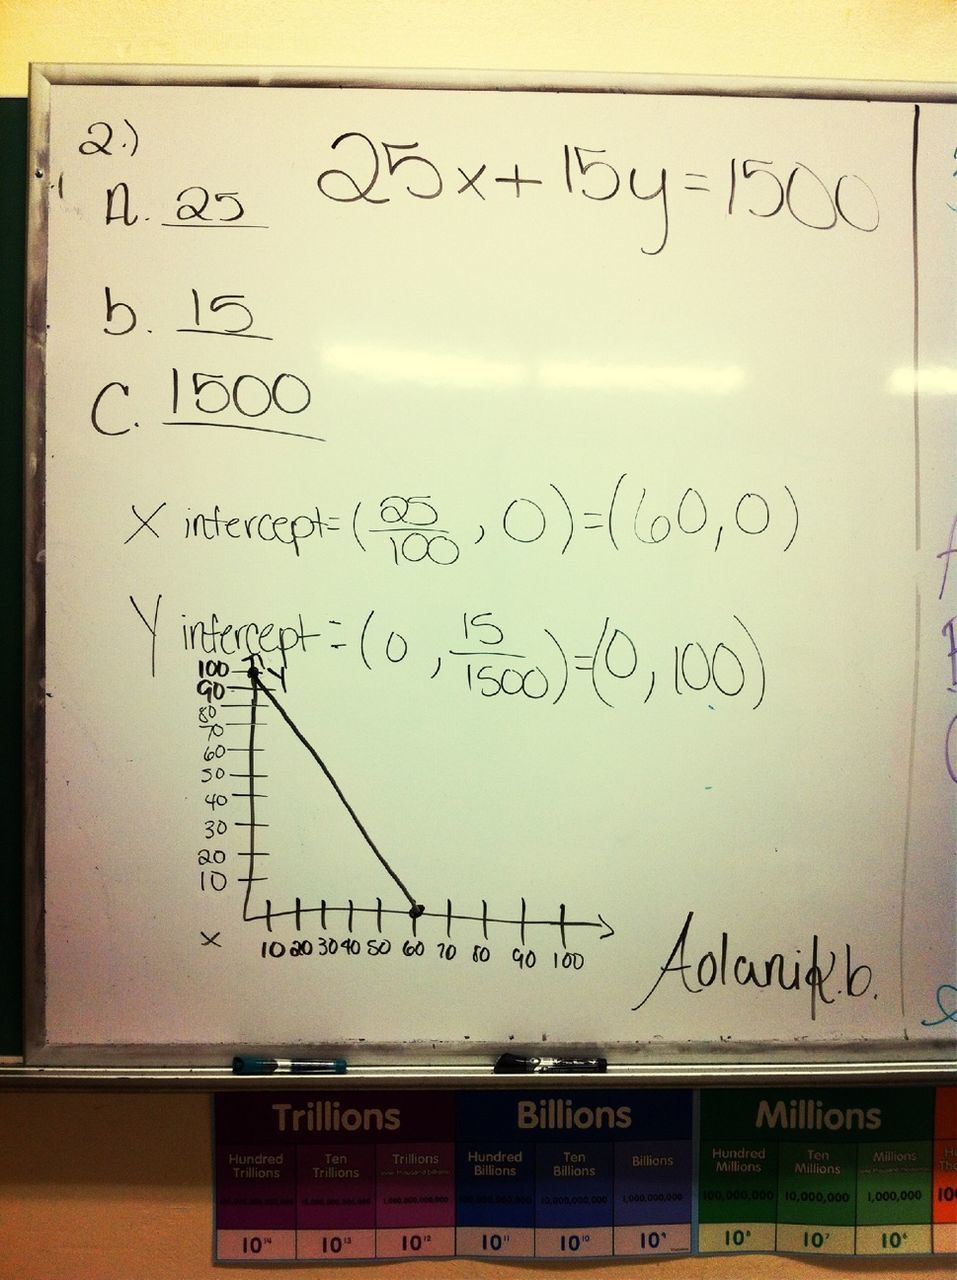 2.)
25x+15y=1500
A. 25
b. 15
C. 1500
X intercept=(25/100, 0)=(60,0)
Y intercept=(0, 15/1500)=(0,100)
Y
100
90
80
70
60
50
40
30
20
10
X
10 20 30 40 50 60 70 80 90 100
Aolani K.b.
Trillions Billions Millions
Hundred Trillions Ten Trillions Trillions Hundred Billions Ten Billions Billions Hundred Millions Ten Millions Millions
1,000,000,000,000 10,000,000,000 1,000,000,000 100,000,000 10,000,000 1,000,000
10¹⁴ 10¹³ 10¹² 10¹¹ 10¹⁰ 10⁹ 10⁸ 10⁷ 10⁶